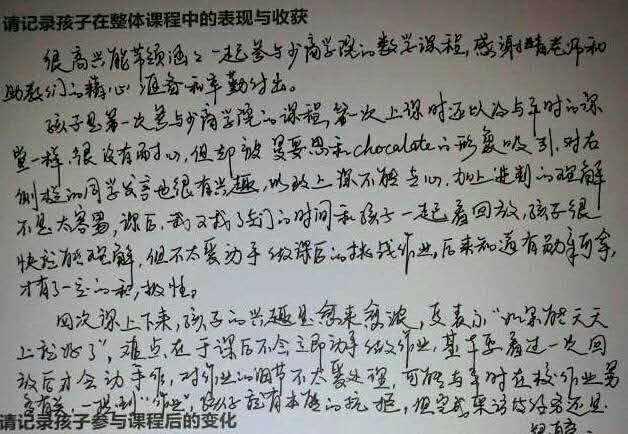 请记录孩子在整体课程中的表现与收获
很高兴能带领涵涵一起参与少商学院的数学课程,感谢晴老师和
助教们的精心准备和辛勤付出。
孩子是第一次参与少商学院的课程,第一次上课时还以为与平时的课
堂一样,很没有耐心,但却被曼要思和chocolate的形象吸引,对右
侧栏的同学发言也很有兴趣,以致上课不能专心,加上进制的理解
不是太容易,课后,我又找了专门的时间和孩子一起看回放,孩子很
快就能理解,但不太爱动手做课后的挑战作业,后来知道有勋章可拿,
才有了一定的积极性。
四次课上下来,孩子的兴趣是愈来愈浓,反表示“如果能天天
上就好了”,难点在于课后不会立即动手做作业,基本要看过一次回
放后才会动手作,对作业的细节不太爱处理,可能与平时在校作业多
有关,一提到“作业”,孩子就有本能的抗拒,但完成来说的任务还是
请记录孩子参与课程后的变化